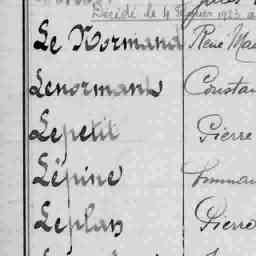 Décédé le 4 Février 1923 a
Le Normand René Mau
Lenormand Constan
Lepetit Pierre
Lépine
Leplan Pierre